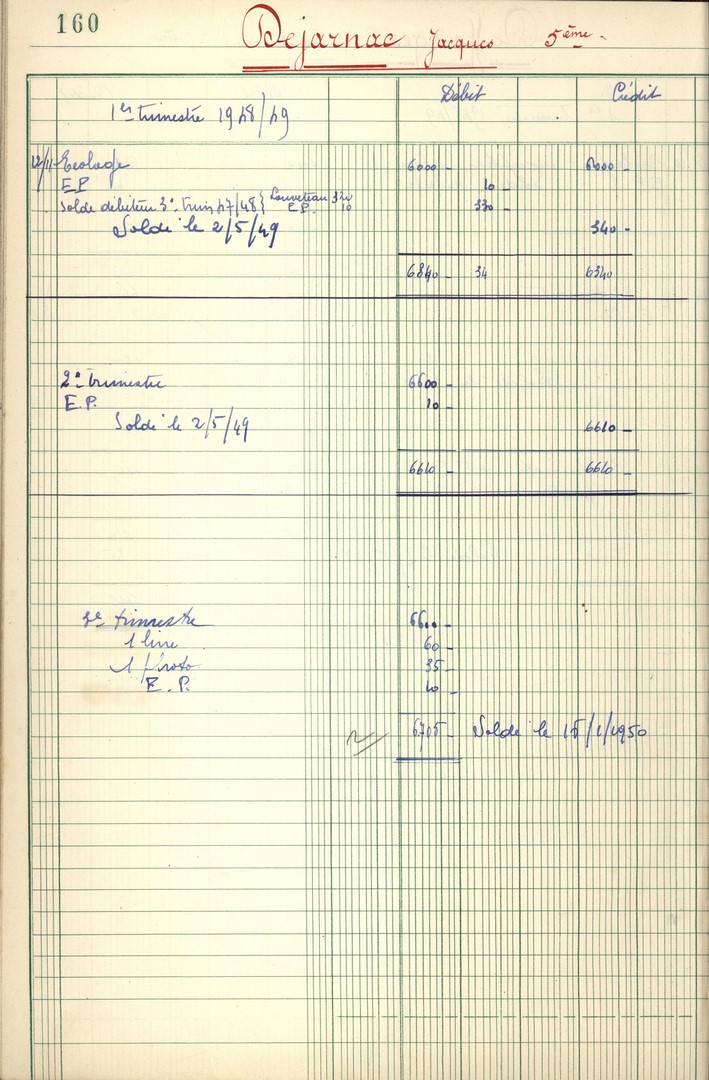 160
Dejarnac Jacques 5ème -
Débit Crédit
1er trimestre 1948/49
12/11 Ecolage 6000 - 6000 -
E P 10 -
Solde débiteur 3e trim 47/48 { Louveteau 320 330 -
E.P. 10
Soldé le 2/5/49 340 -
6340 - 34 6340
2e trimestre 6600 -
E.P. 10 -
Soldé le 2/5/49 6610 -
6610 - 6610 -
3e trimestre 6600 -
1 livre 60 -
1 photo 35 -
E. P. 10 -
6705 - Soldé le 15/1/1950